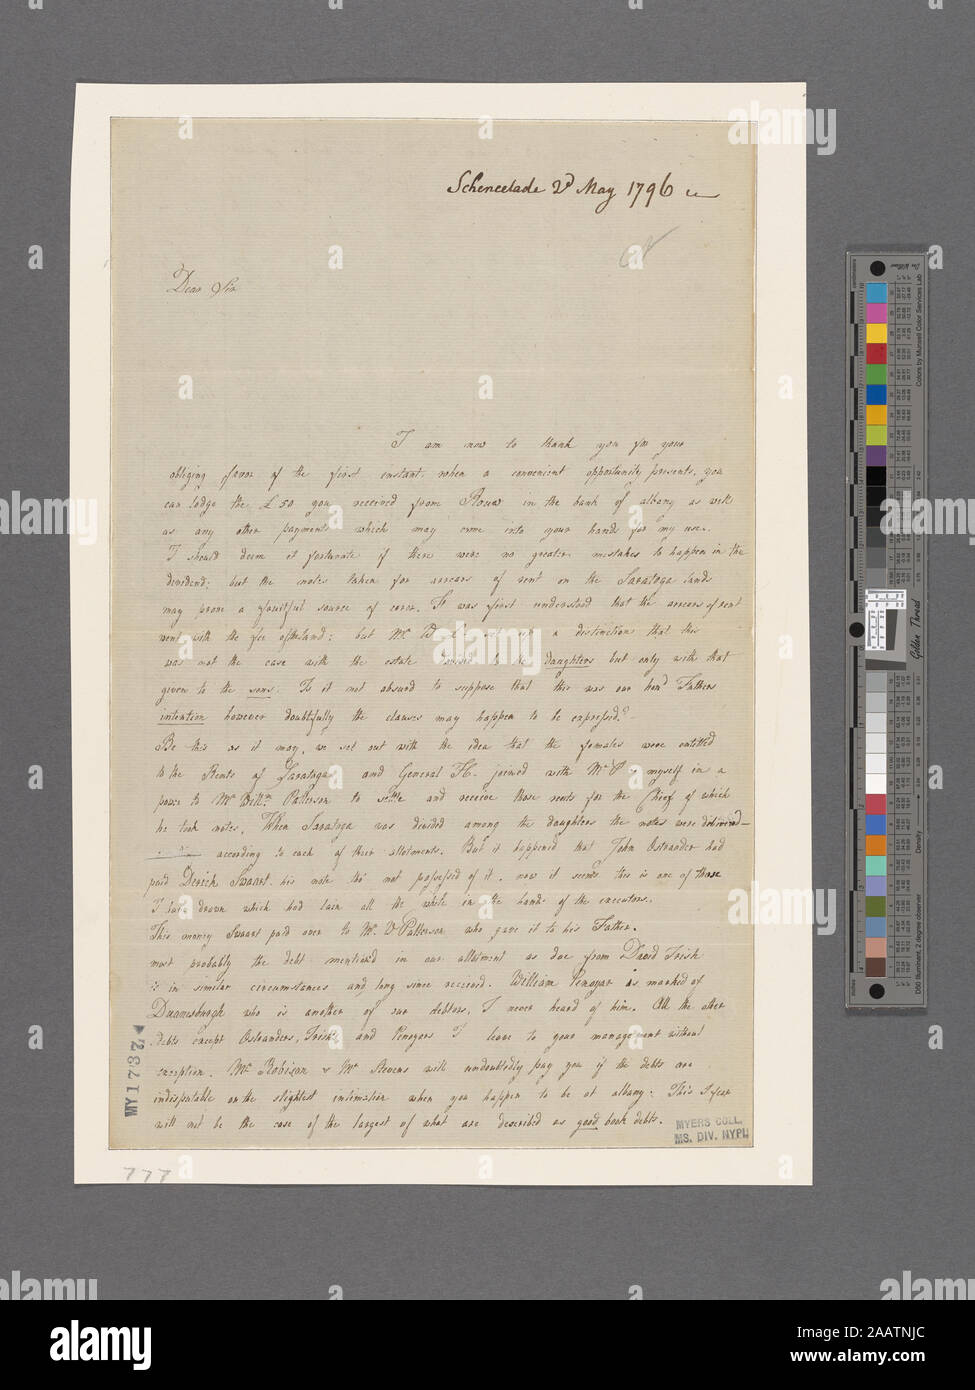 Schenectade 2d May 1796
Dear Sir
I am now to thank you for your
obliging favor of the first instant, when a convenient opportunity presents, you
can lodge the £50 you received from Rouw in the bank of albany as well
as any other payments which may come into your hands for my use.
I should deem it fortunate if there were no greater mistakes to happen in the
dividend; but the notes taken for arrears of rent on the Saratoga lands
may prove a fruitful source of error. It was first understood that the arrears of rent
went with the fee of the land: but Mr a distinction that this
was not the case with the estate devised to the daughters but only with that
given to the sons. Is it not absurd to suppose that this was our hond Fathers
intention however doubtfully the clauses may happen to be expressed?
Be this as it may, we set out with the idea that the females were entitled
to the Rents of Saratoga and General H. joined with Mr P & myself in a
power to Mr Willm Patterson to settle and receive those rents for the Chief of which
he took notes. When Saratoga was divided among the daughters the notes were delivered
according to each of their allotments. But it happened that John Ostrander had
paid Derick Swaart his note tho' not possessed of it. now it seems this is one of those
I have drawn which had lain all the while in the hands of the executors.
This money Swaart paid over to Mr. Patterson who gave it to his Father.
most probably the debt mentioned in our allotment as due from David Irish
is in similar circumstances and long since received. William Penoyar is marked of
Duanesburgh who is another of our debtors, I never heard of him. All the other
debts except Ostranders, Irish's and Penoyars I leave to your management without
exception. Mr Robison & Mr Stevens will undoubtedly pay you if the debts are
indisputable on the slightest intimation when you happen to be at albany: This I fear
will not be the case of the largest of what are described as good book debts.
MYERS COLL.
MS. DIV. NYPL
MY 1737
777
Colors by Munsell Color Services Lab
Golden Thread
Density
D50 Illuminant, 2 degree observer
a
alamy
alamy
Image ID: 2AATNJC
www.alamy.com